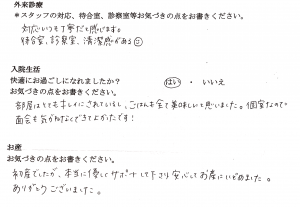 外来診療
＊スタッフの対応、待合室、診察室等お気づきの点をお書きください。
対応いつも丁寧だと感じます。
待合室、診察室、清潔感がある☺
入院生活
快適にお過ごしになれましたか？　はい ・ いいえ
お気づきの点をお書きください。
部屋はとてもキレイにされているし、ごはんも全て美味しいと思いました。個室なので
面会も気がねなくできてよかったです！
お産
お気づきの点をお書きください。
初産でしたが、本当に優しくサポートして下さり安心してお産にいどめました。
ありがとうございました。